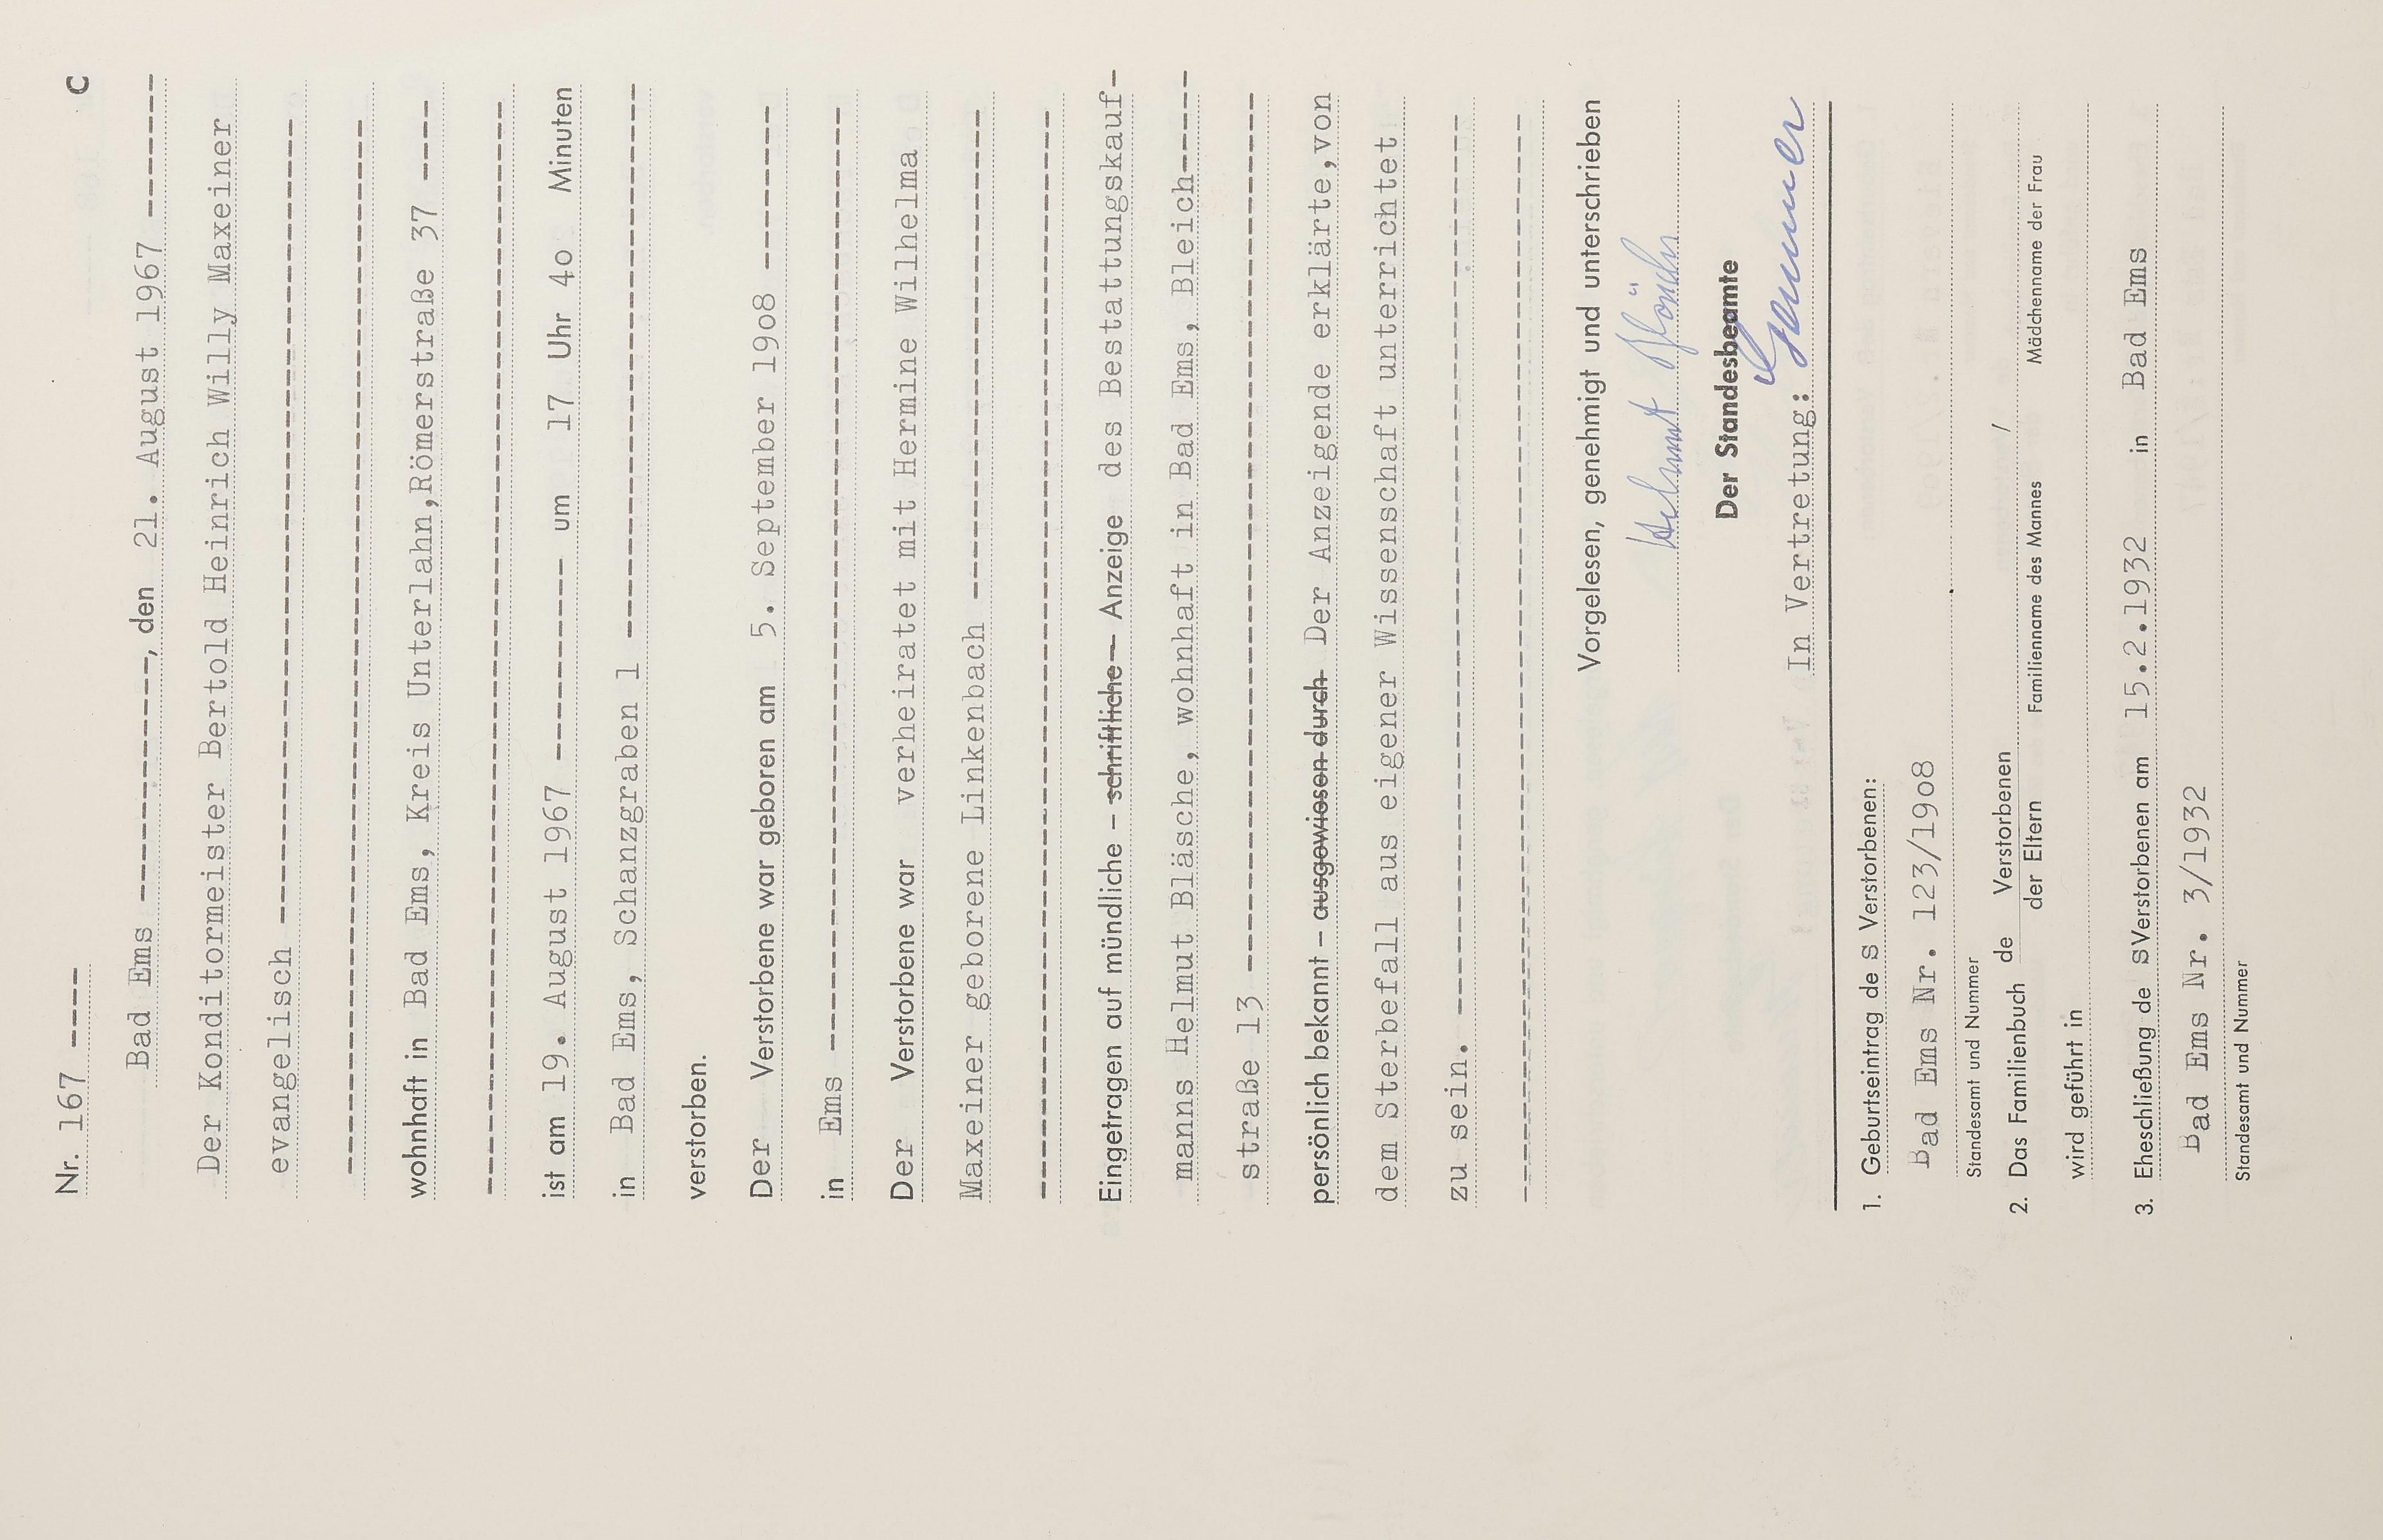 Nr. 167 ---- C
Bad Ems ------------, den 21. August 1967 -------
Der Konditormeister Bertold Heinrich Willy Maxeiner
evangelisch ----------------------------------------
----------------------------------------------------
wohnhaft in Bad Ems, Kreis Unterlahn,Römerstraße 37 ----
----------------------------------------------------
ist am 19. August 1967 ---------- um 17 Uhr 4o Minuten
in Bad Ems, Schanzgraben 1 ---------------------------
verstorben.
Der Verstorbene war geboren am 5. September 19o8 --------
in Ems ---------------------------------------------
Der Verstorbene war verheiratet mit Hermine Wilhelma
Maxeiner geborene Linkenbach ------------------------
----------------------------------------------------
Eingetragen auf mündliche – schriftliche – Anzeige des Bestattungskauf-
manns Helmut Bläsche, wohnhaft in Bad Ems, Bleich-----
straße 13 ------------------------------------------
persönlich bekannt – ausgewiesen durch Der Anzeigende erklärte,von
dem Sterbefall aus eigener Wissenschaft unterrichtet
zu sein. -------------------------------------------
----------------------------------------------------
Vorgelesen, genehmigt und unterschrieben
Helmut Bläsche
Der Standesbeamte
In Vertretung:
1. Geburtseintrag de s Verstorbenen:
Bad Ems Nr. 123/19o8
Standesamt und Nummer
2. Das Familienbuch de Verstorbenen /
der Eltern Familienname des Mannes Mädchenname der Frau
wird geführt in
3. Eheschließung de sVerstorbenen am 15.2.1932 in Bad Ems
Bad Ems Nr. 3/1932
Standesamt und Nummer